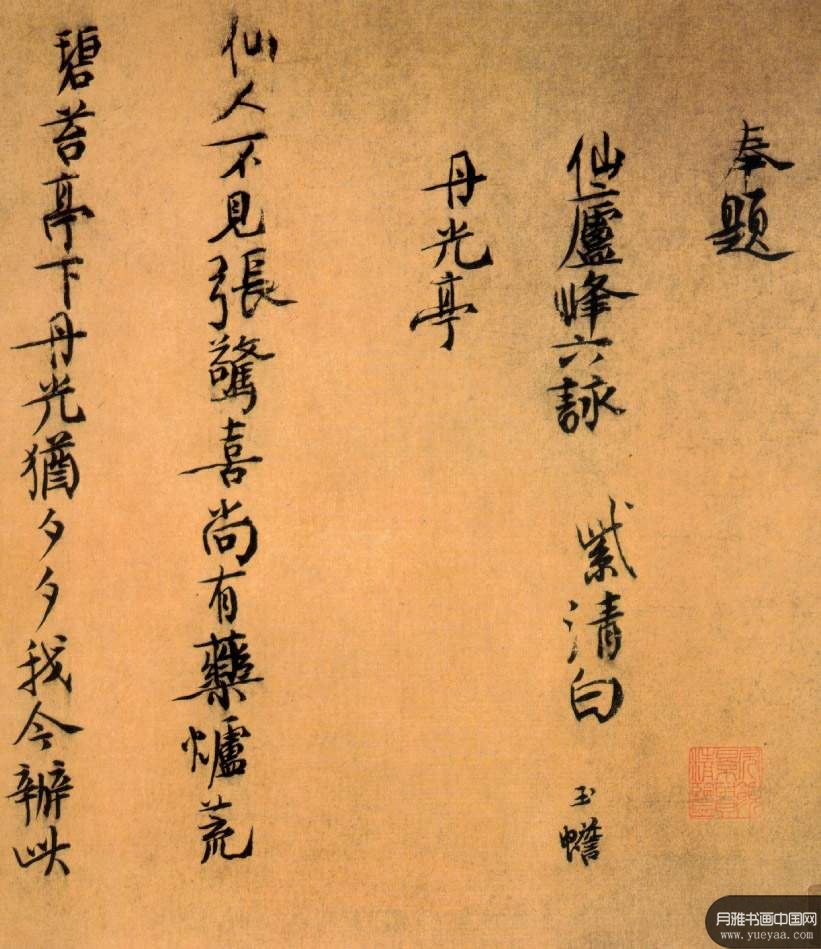 奉題
仙廬峰六詠　紫清白玉蟾
丹光亭
仙人不見張驚喜尚有藥爐荒
碧苔亭下丹光猶夕夕我今辦此
月雅书画中国网
www.yueyaa.com